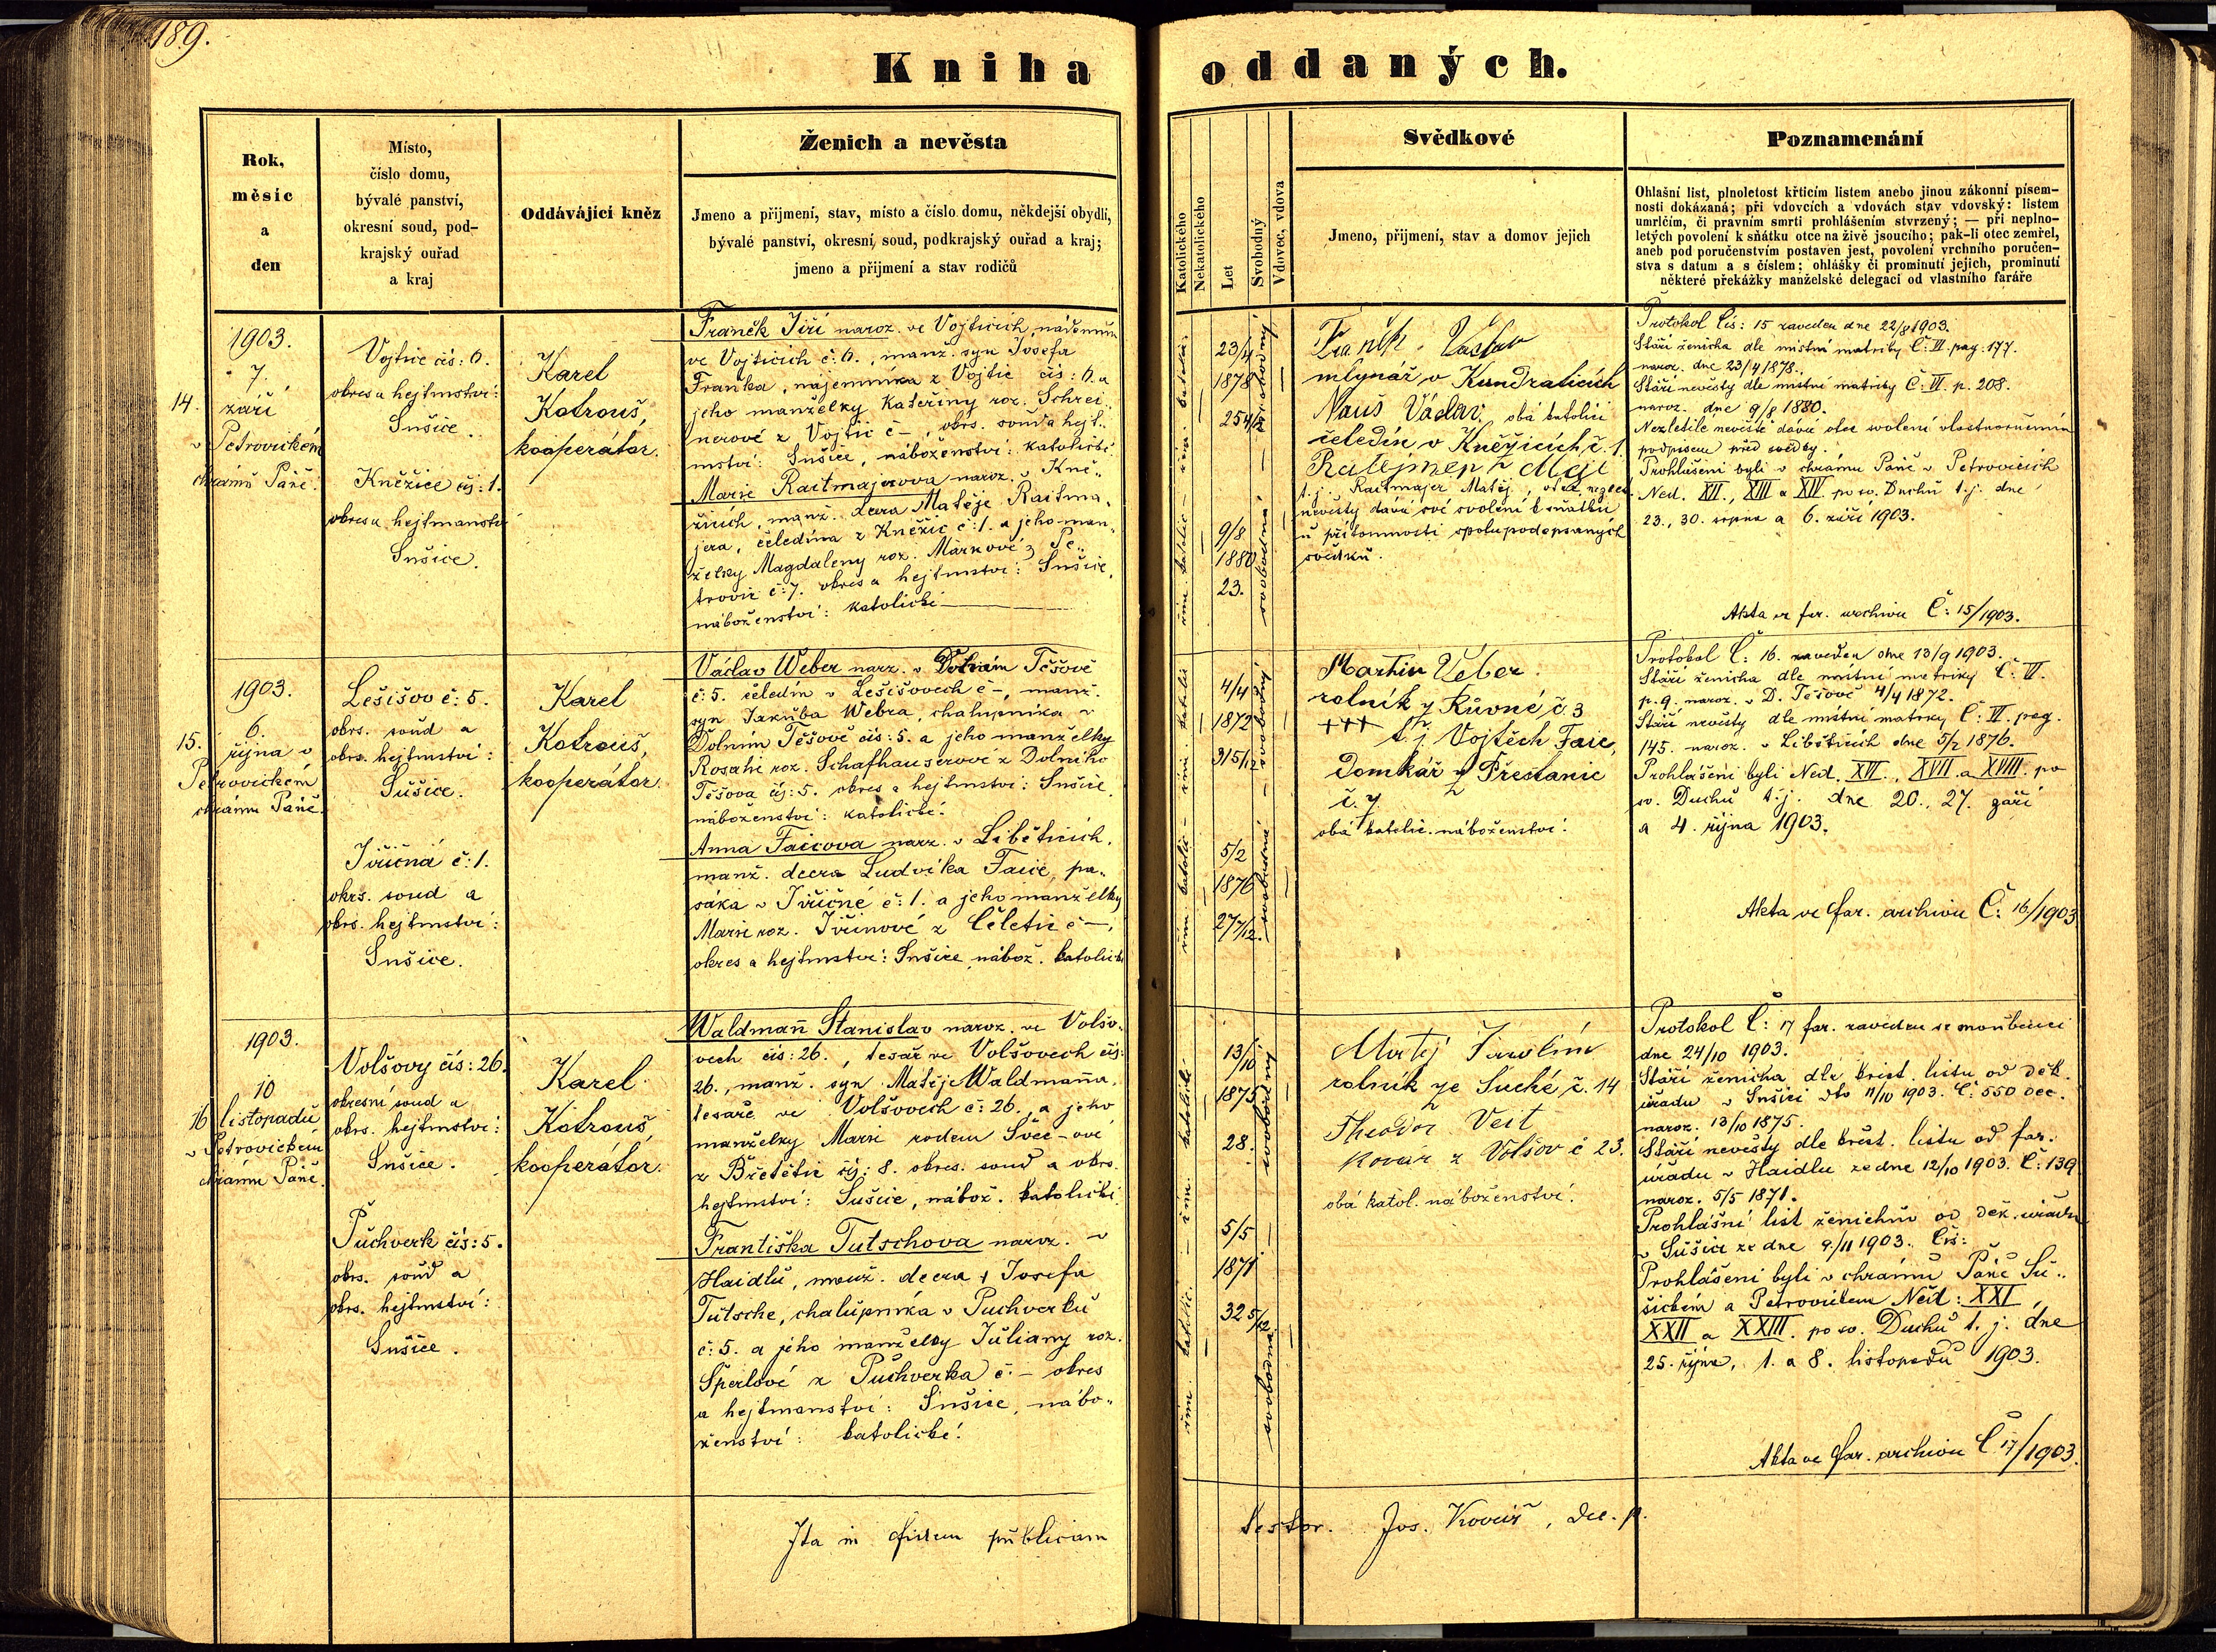 189.
Kniha oddaných.
Rok,
měsíc
a
den
Místo,
číslo domu,
bývalé panství,
okresní soud, pod-
krajský ouřad
a kraj
Oddávající kněz
Ženich a nevěsta
Jmeno a přijmení, stav, místo a číslo domu, někdejší obydlí,
bývalé panství, okresní soud, podkrajský ouřad a kraj;
jmeno a přijmení a stav rodičů
Katolického
Nekatolického
Let
Svobodný
Vdovec, vdova
Svědkové
Jmeno, přijmení, stav a domov jejich
Poznamenání
Ohlašní list, plnoletost křticím listem anebo jinou zákonní písem-
nosti dokázaná; při vdovcích a vdovách stav vdovský: listem
umrlčím, či pravním smrti prohlášením stvrzený; — při neplno-
letých povolení k sňátku otce na živě jsoucího; pak-li otec zemřel,
aneb pod poručenstvím postaven jest, povolení vrchního poručen-
stva s datum a s číslem; ohlášky či prominutí jejich, prominutí
některé překážky manželské delegací od vlastního faráře
14.
1903.
7.
září
v Petrovickém
chrámu Páně.
Vojtice čís: 6.
okres a hejtmství:
Sušice.
Kněžice čís: 1.
okres a hejtmanství
Sušice.
Karel
Kotrouš,
kooperátor.
Franěk Jiří naroz. ve Vojticích, nádenník
ve Vojticích č: 6., manž. syn Josefa
Fraňka, nájemníka z Vojtic čís: 6. a
jeho manželky Kateřiny roz. Schrei-
nerové z Vojtic č —, okrs. soud a hejt-
mství: Sušice, náboženství: katolické.
Marie Raitmajerova naroz. v Kně-
žicích, manž. dcera Matěje Raitma-
jera, čeledína z Kněžic č: 1. a jeho man-
želky Magdaleny roz. Markové z Pe-
trovic č: 7. okres a hejtmství: Sušice,
náboženství: katolické
řím. katolic. — řím. katolic.
23/4
1878
25 4/12
svobodný
9/8
1880
23.
svobodná
Franěk Václav
mlynář v Kundraticích
Nauš Václav, obá katolíci
čeledín v Kněžicích č. 1.
t. j. Raitmajer Matěj, otec nezlet.
nevěsty dává své svolení k sňatku
u přítomnosti spolupodepsaných
svědků.
Protokol čís: 15 zaveden dne 22/8 1903.
Stáří ženicha dle místní matriky Č: VI. pag. 177.
naroz. dne 23/4 1878.
Stáří nevěsty dle místní matriky Č: VI. p. 208.
naroz. dne 9/8 1880.
Nezletilé nevěstě dává otec svolení vlastnoručním
podpisem před svědky.
Prohlášeni byli v chrámu Páně v Petrovicích
Ned. XII., XIII a XIV. po sv. Duchu t. j. dne
23., 30. srpna a 6. září 1903.
Akta ve far. archivu Č: 15/1903.
15.
1903.
6.
října v
Petrovickém
chrámu Páně.
Lešišov č: 5.
okrs. soud a
okrs. hejtmství:
Sušice.
Jiřičná č: 1.
okrs. soud a
okrs. hejtmství:
Sušice.
Karel
Kotrouš,
kooperátor.
Václav Weber narz. v Dolním Těšově
č: 5. čeledín v Lešišovech č —, manž.
syn Jakuba Webra, chalupníka v
Dolním Těšově čís: 5. a jeho manželky
Rosalie roz. Schafhauserové z Dolního
Těšova čís: 5. okres a hejtmství: Sušice.
náboženství: katolické.
Anna Faicova narz. v Libětících,
manž. dcera Ludvíka Faice, pa-
sáka v Jiřičné č: 1. a jeho manželky
Marie roz. Jiřinové z Čeletic č —,
okres a hejtmství: Sušice, nábož. katolické
řím. katolic. — řím. katolic.
4/4
1872
31 5/12
svobodný
5/2
1876
27 7/12.
svobodná
Martin Veber
rolník z Růvné, č. 3
+++
t. j. Vojtěch Faic,
Domkář z Přestanic
č. 7
obá katolic. náboženství.
Protokol Č: 16. zaveden dne 13/9 1903.
Stáří ženicha dle místní matriky Č: VI.
p. 9. naroz. v D. Těšově 4/4 1872.
Stáří nevěsty dle místní matriky Č: VI. pag.
145. naroz. v Libětících dne 5/2 1876.
Prohlášeni byli Ned. XVI., XVII. a XVIII. po
sv. Duchu t. j. dne 20., 27. září
a 4. října 1903.
Akta ve far. archivu Č: 16/1903
16
1903.
10
listopadu
v Petrovickém
chrámu Páně.
Volšovy čís: 26.
okresní soud a
okrs. hejtmství:
Sušice.
Puchverk čís: 5.
okrs. soud a
okrs. hejtmství:
Sušice.
Karel
Kotrouš,
kooperátor.
Waldmañ Stanislav naroz. ve Volšo-
vech čís: 26., tesař ve Volšovech čís:
26., manž. syn Matěje Waldmaña,
tesaře ve Volšovech č: 26., a jeho
manželky Marie rodem Švec-ové
z Břetětic čís: 8. okres. soud a okrs.
hejtmství: Sušice, nábož. katolické.
Františka Tutschova naroz. v
Haidlu, manž. dcera † Josefa
Tutsche, chalupníka v Puchverku
č: 5. a jeho manželky Juliany roz.
Šperlové z Puchverka č. — okres
a hejtmanství: Sušice, nábo-
ženství: katolické.
řím. katolic. — řím. katolické
13/10
1875
28.
svobodný
5/5
1871
32 5/12
svobodná
Matěj Jarolím
rolník ze Suché č. 14
Theodor Veit
Kovář z Volšov č 23.
obá katol. náboženství.
Protokol Č: 17 far. zaveden se snoubenci
dne 24/10 1903.
Stáří ženicha dle křest. listu od děk.
úřadu v Sušici dto 11/10 1903. Č: 550 dec.
naroz. 13/10 1875.
Stáří nevěsty dle křest. listu od far.
úřadu v Haidlu ze dne 12/10 1903. Č: 139
naroz. 5/5 1871.
Prohlášní list ženichův od děk. úřadu
v Sušici ze dne 9./11 1903. Čís:
Prohlášeni byli v chrámu Páně Su-
šickém a Petrovickém Ned: XXI,
XXII a XXIII. po sv. Duchu t. j. dne
25. října, 1. a 8. listopadu 1903.
Akta ve far. archivu Č 17/1903.
Ita in fidem publicam testor. Jos. Kovář, dec. p.